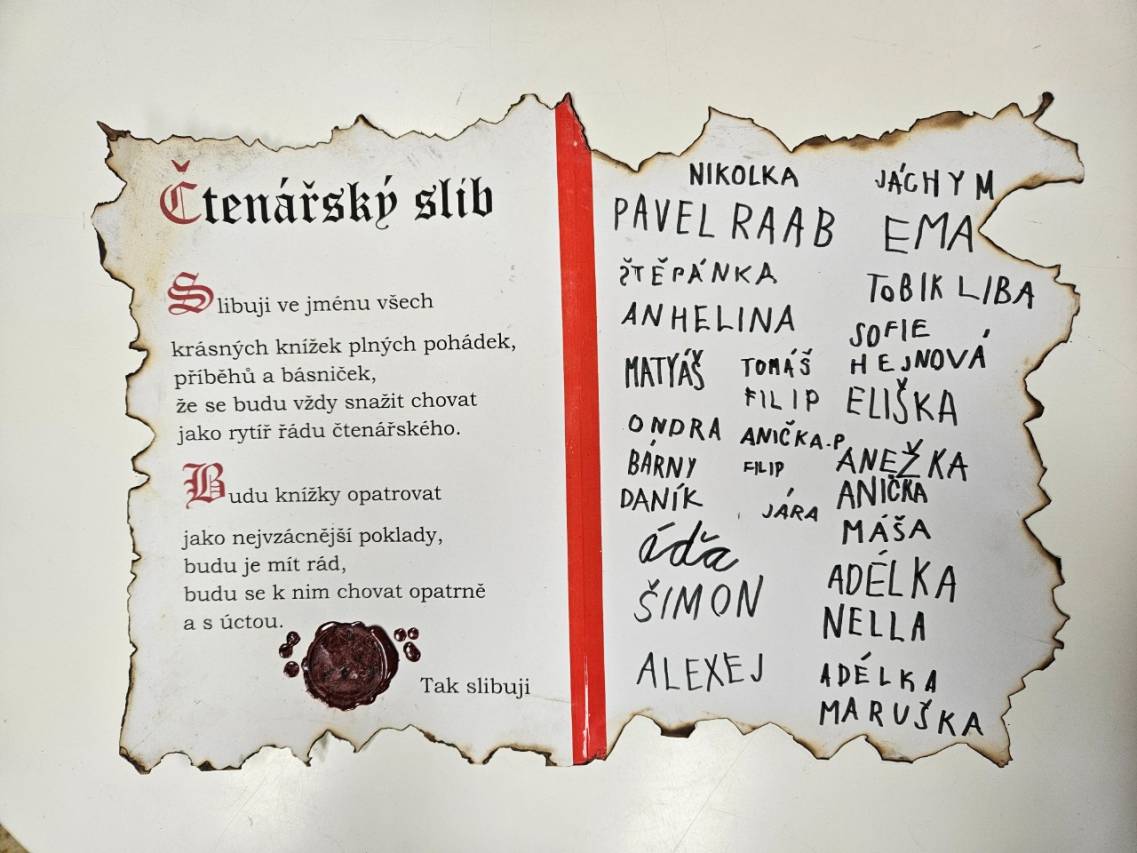 Čtenářský slib
Slibuji ve jménu všech
krásných knížek plných pohádek,
příběhů a básniček,
že se budu vždy snažit chovat
jako rytíř řádu čtenářského.
Budu knížky opatrovat
jako nejvzácnější poklady,
budu je mít rád,
budu se k nim chovat opatrně
a s úctou.
Tak slibuji
NIKOLKA
PAVEL RAAB
ŠTĚPÁNKA
ANHELINA
MATYÁŠ
TOMÁŠ
FILIP
ONDRA
ANIČKA.P
BÁRNY
FILIP
DANÍK
JÁRA
áďa
ŠIMON
ALEXEJ
JÁCHYM
EMA
TOBIK LIBA
SOFIE
HEJNOVÁ
ELIŠKA
ANEŽKA
ANIČKA
MÁŠA
ADÉLKA
NELLA
ADÉLKA
MARUŠKA